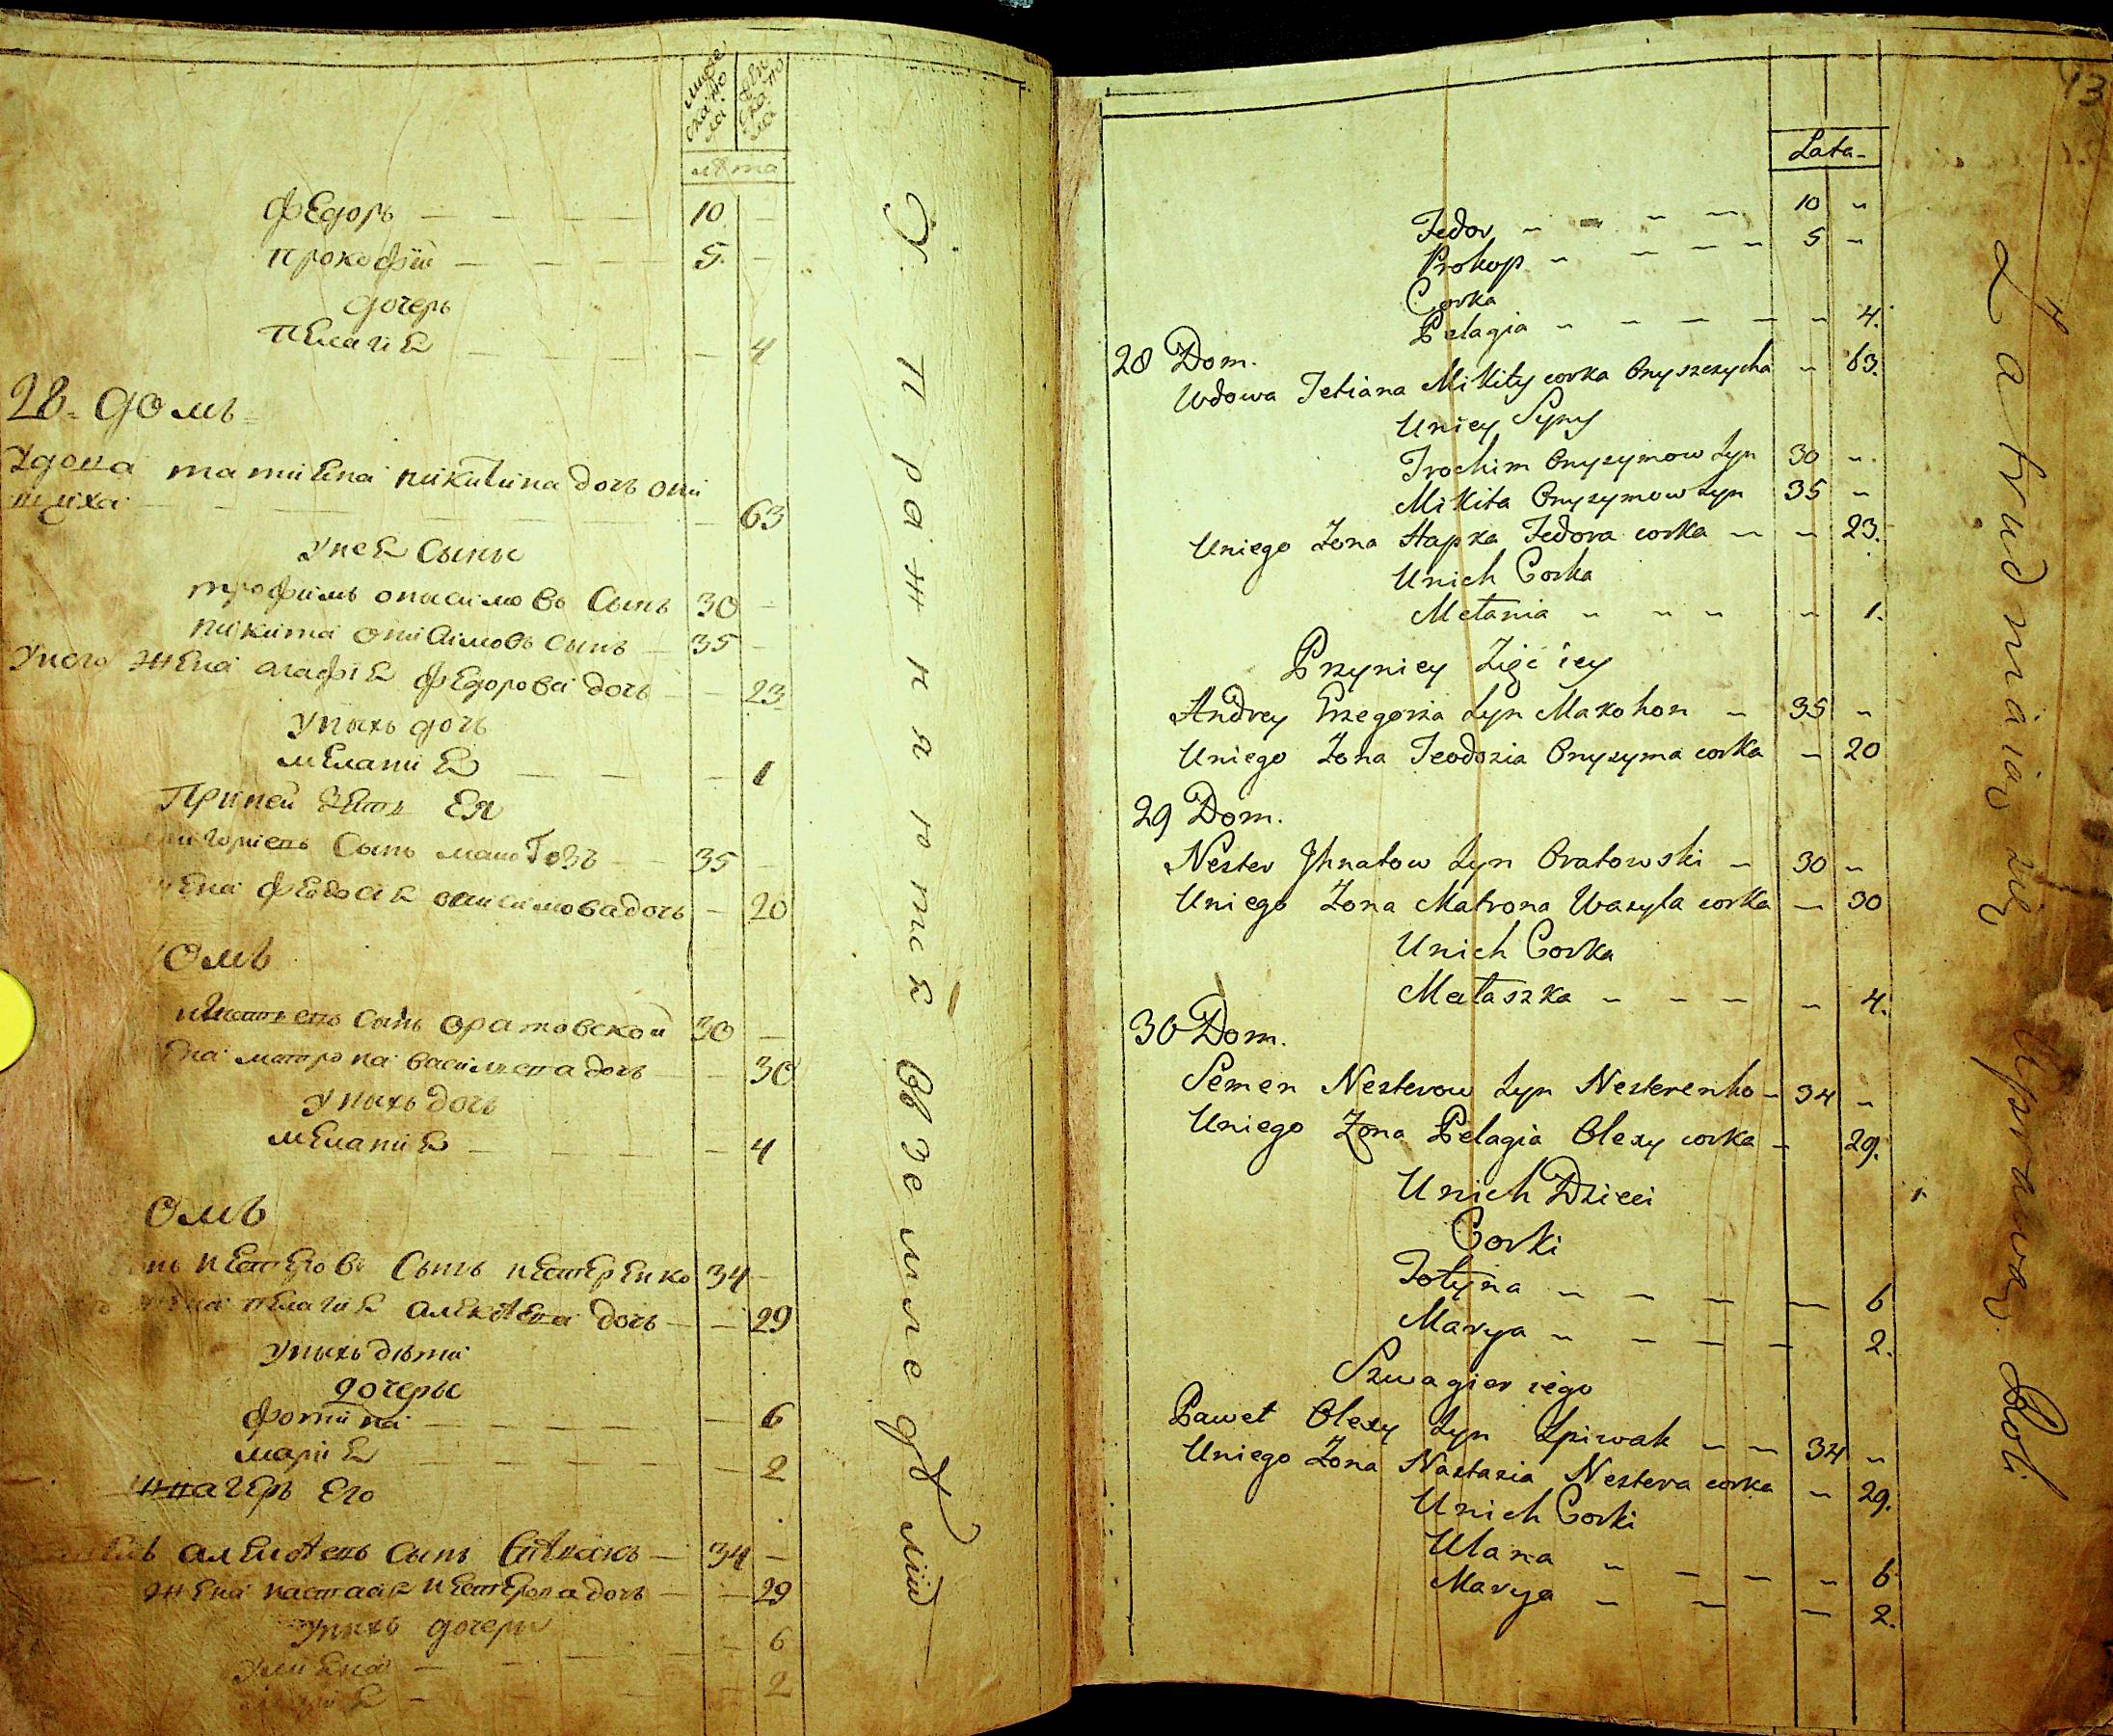 мужеска полa
женска пола
лѣта
Федоръ — — — — 10 —
Прокофій — — — — 5 —
дочерь
Пелагиѣ — — — — 4
28. домъ
Удова татиѣна никитина дочь они
шиха — — — — 63
Унеѣ Сыны
трофимъ онисимовъ Сынъ 30 —
никита онисимовъ сынъ — 35 —
Унего жена агафіѣ Федорова дочь — — 23
Унихъ дочь
меланиѣ — — — — 1
Приней зять Ея
григориевъ Сынъ 35 —
жена федосиѣ онисимова дочь — 20
омъ
Сынъ оратовской 30 —
матрона василиева дочь — — 30
Унихъ дочь
меланиѣ — — — — 4
омъ
нестеровъ Сынъ нестеренко 34 —
жена пелагиѣ алексѣева дочь — — 29
Унихъ дѣти
дочеры
фотина — — — — 6
мариѣ — — — — 2
швагеръ Его
алексѣевъ сынъ Спѣвакъ — 34 —
жена настасиѣ нестерова дочь — — 29
Унихъ дочери
Улиѣна — — — — 6
— 2
Упражняются въ земледѣлии
43
Lata
Fedor — — — — 10 —
Prokop — — — — 5 —
Corka
Pelagia — — — — 4.
28 Dom.
Wdowa Tetiana Mikity corka Onyszczycha — 63.
Uniey Syny
Trochim Onyzymow Syn 30 —
Mikita Onyzymow Syn 35 —
Uniego Zona Hapka Fedora corka — — 23.
Unich Corka
Melania — — — — 1.
Przyniey Zięć iey
Andrey Grzegorza Syn Makohon — 35 —
Uniego Zona Teodozia Onyzyma corka — 20
29 Dom.
Nester Jhnatow Syn Oratowski — 30 —
Uniego Zona Matrona Wasyla corka — 30
Unich Corka
Mełaszka — — — — 4.
30 Dom.
Semen Nesterow Syn Nesterenko — 34 —
Uniego Zona Pelagia Olexy corka — 29.
Unich Dzieci
Corki
Fotyna — — — — 6
Marya — — — — 2.
Szwagier iego
Paweł Olexy Syn Spiwak — — 34 —
Uniego Zona Nastazia Nestera corka — 29.
Unich Corki
Ulana — — — — 6
Marya — — — — 2.
Zatrudniaią się Uprawą Roli